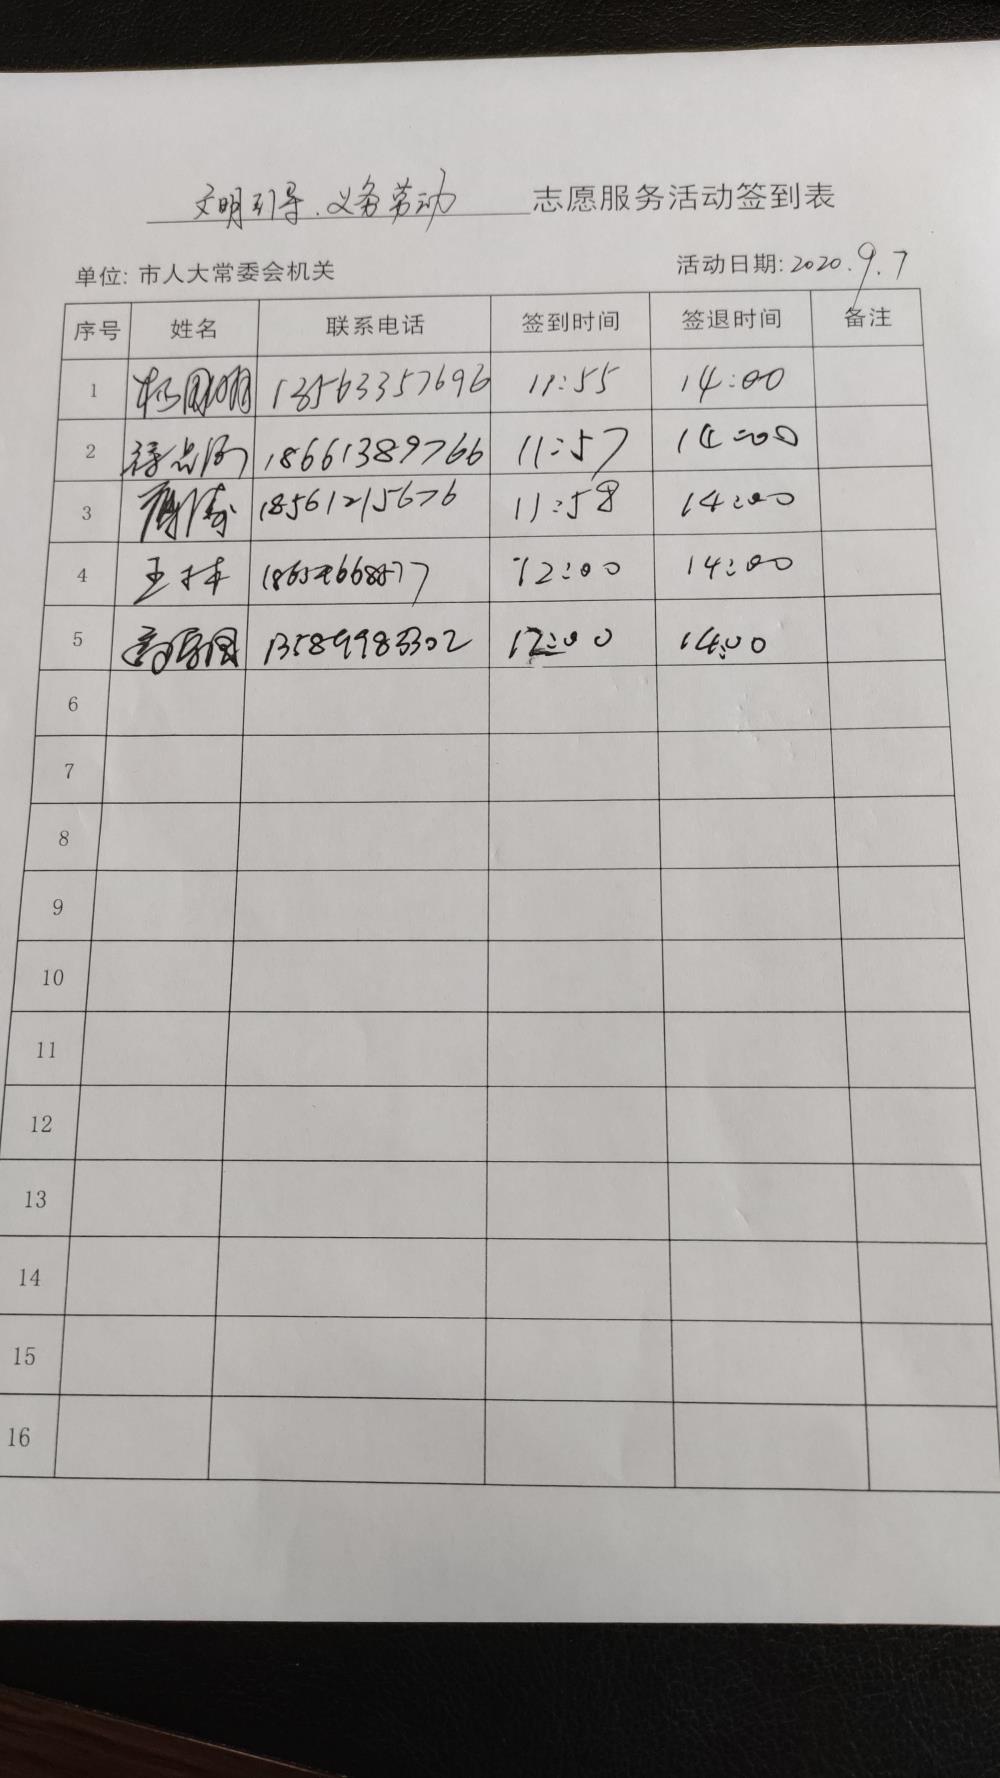 文明引导、义务劳动 志愿服务活动签到表
单位: 市人大常委会机关 活动日期: 2020.9.7
序号 姓名 联系电话 签到时间 签退时间 备注
1 13563357696 11:55 14:00
2 18661389766 11:57 14:00
3 18561215676 11:58 14:00
4 王林 12:00 14:00
5 13589983302 12:00 14:00
6
7
8
9
10
11
12
13
14
15
16